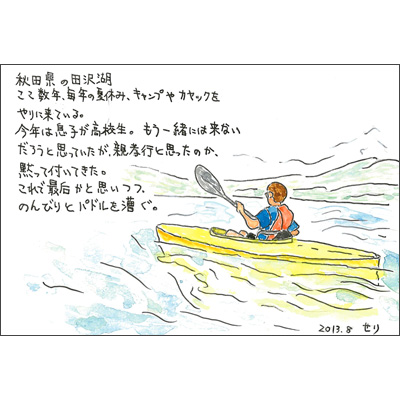 秋田県の田沢湖
ここ数年、毎年の夏休み、キャンプやカヤックを
やりに来ている。
今年は息子が高校生。もう一緒には来ない
だろうと思っていたが、親孝行と思ったのか、
黙って付いてきた。
これで最后かと思いつつ、
のんびりとパドルを漕ぐ。
2013.8 せり